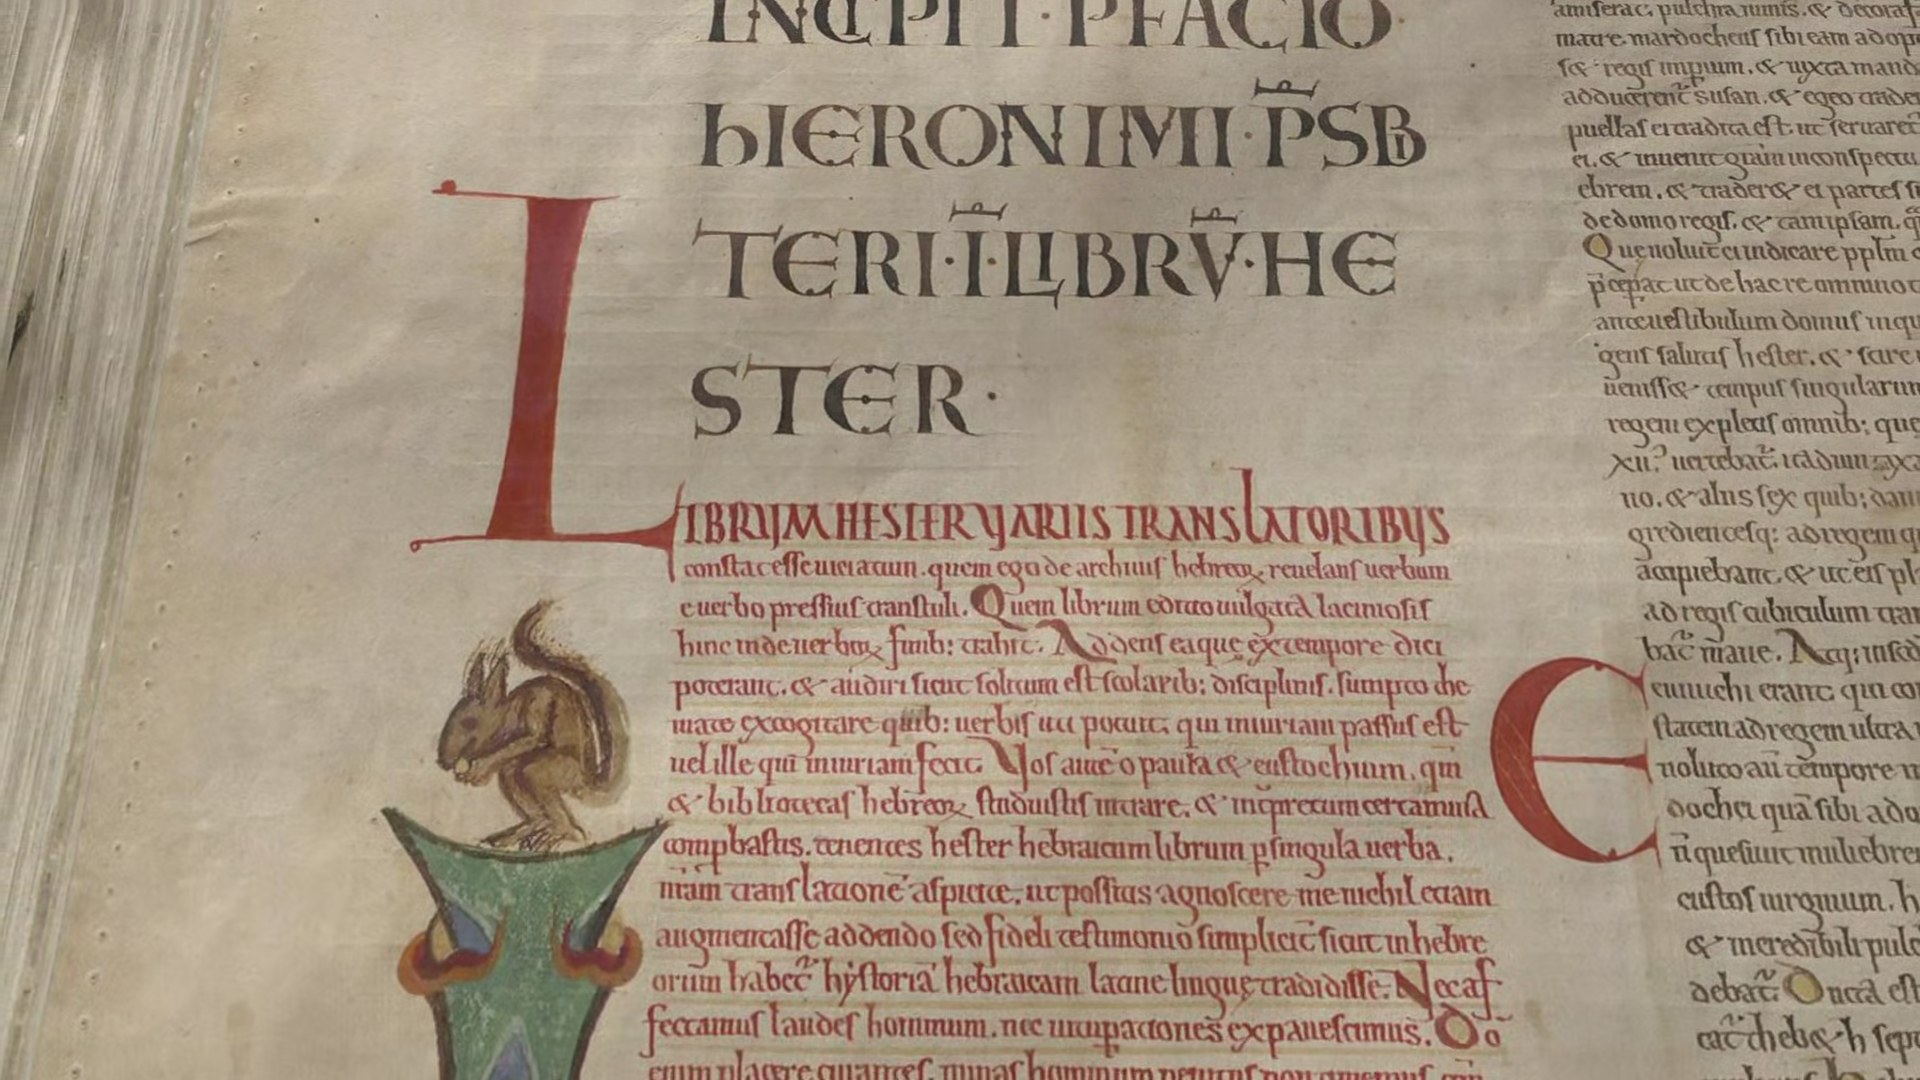 INCIPIT·PFACIO
hIERONIMI·P̄SB
TERI·Ī·LIBRV̄·HE
STER·
LIBRUM HESTER UARIIS TRANSLATORIBUS
constat esse uiciatum. quem ego de archiuis hebreoꝝ reuelans uerbum
e uerbo pressius transtuli. Quem librum editio uulgata laciniosis
hinc inde uerboꝝ sinib: trahit. Addens ea que ex tempore dici
poterant. & audiri sicut solitum est scolarib; disciplinis. sumpto the
mate excogitare quib: uerbis uti potuit. qui iniuriam passus est
uel ille qui iniuriam fecit. Vos autē o paula & eustochium. qm̄
& bibliotecas hebreoꝝ studuistis intrare. & int̄pretum certamina
comp̱bastis. tenentes hester hebraicum librum ꝑ singula uerba.
nr̄am translationē aspicite. ut possitis agnoscere me nichil etiam
augmentasse addendo sed fideli testimonio simplicit̄ sicut in hebre
orum habet̄ hystoriā hebraicam latine linguę tradidisse. Nec af
fectamus laudes hominum. nec uitupationes expauescimus. Dō
enim placere
amiserat. pulchra nimis. & decora
matre mardocheus sibi eam adop
s& regis imp̱ium. & iuxta mand
adducerent̄ susan. & egeo trader
puellas et tradita est. ut seruaret̄
ei. & inuenit gr̄am in conspectu
ebrem. & trader& ei partes s
de domo regis. & tam ipsam. q
Que noluit ei indicare pplm̄
p̄cepat ut de hac re omnino
ante uestibulum domus in qu
gens salutis hester. & scire
uenisse& tempus singularum
regem expletis omnib; que
xii. uertebat̄. ita dum
no. & aliis sex quib; dam
gredientesq: ad regem q
accipiebant. & ut eis pl
ad regis cubiculum tran
bat̄ mane. Atq; insed
eunuchi erant qui co
statem ad regem ultra
E uoluto aū tempore
dochei quā sibi ado
n̄ quesiuit muliebre
custos uirginum. h
& incredibili pulc
debat̄. Ducta est